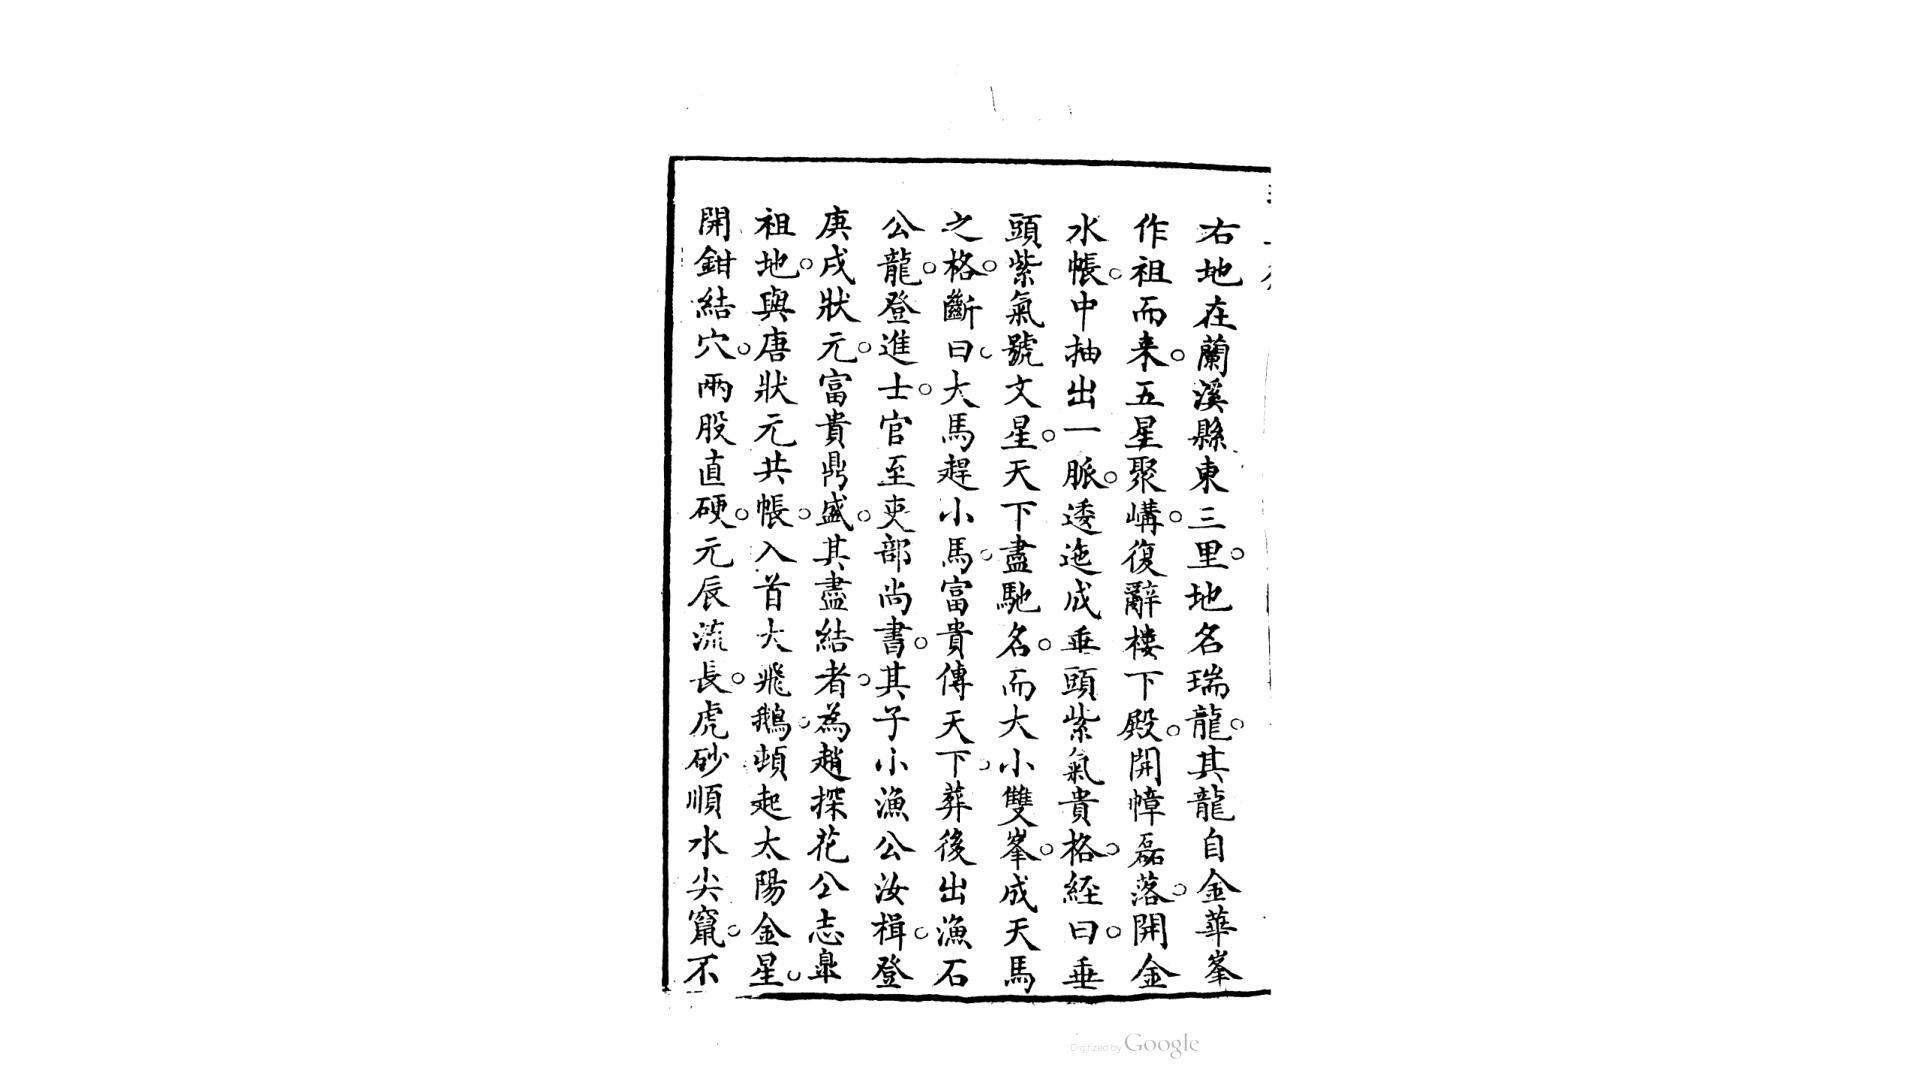 右地在蘭溪縣東三里。地名瑞龍。其龍自金華峯
作祖而来。五星聚嶹。復辭樓下殿。開幛磊落。開金
水帳。中抽出一脈。逶迤成垂頭紫氣貴格。經曰。垂
頭紫氣號文星。天下盡馳名。而大小雙峯。成天馬
之格。斷曰。大馬趕小馬。富貴傳天下。葬後出漁石
公龍。登進士。官至吏部尚書。其子小漁公汝楫。登
庚戌狀元。富貴鼎盛。其盡結者。為趙探花公志臯
祖地。與唐狀元共帳。入首大飛鵝。頓起太陽金星。
開鉗結穴。兩股直硬。元辰流長。虎砂順水尖竄。不
Digitized by Google